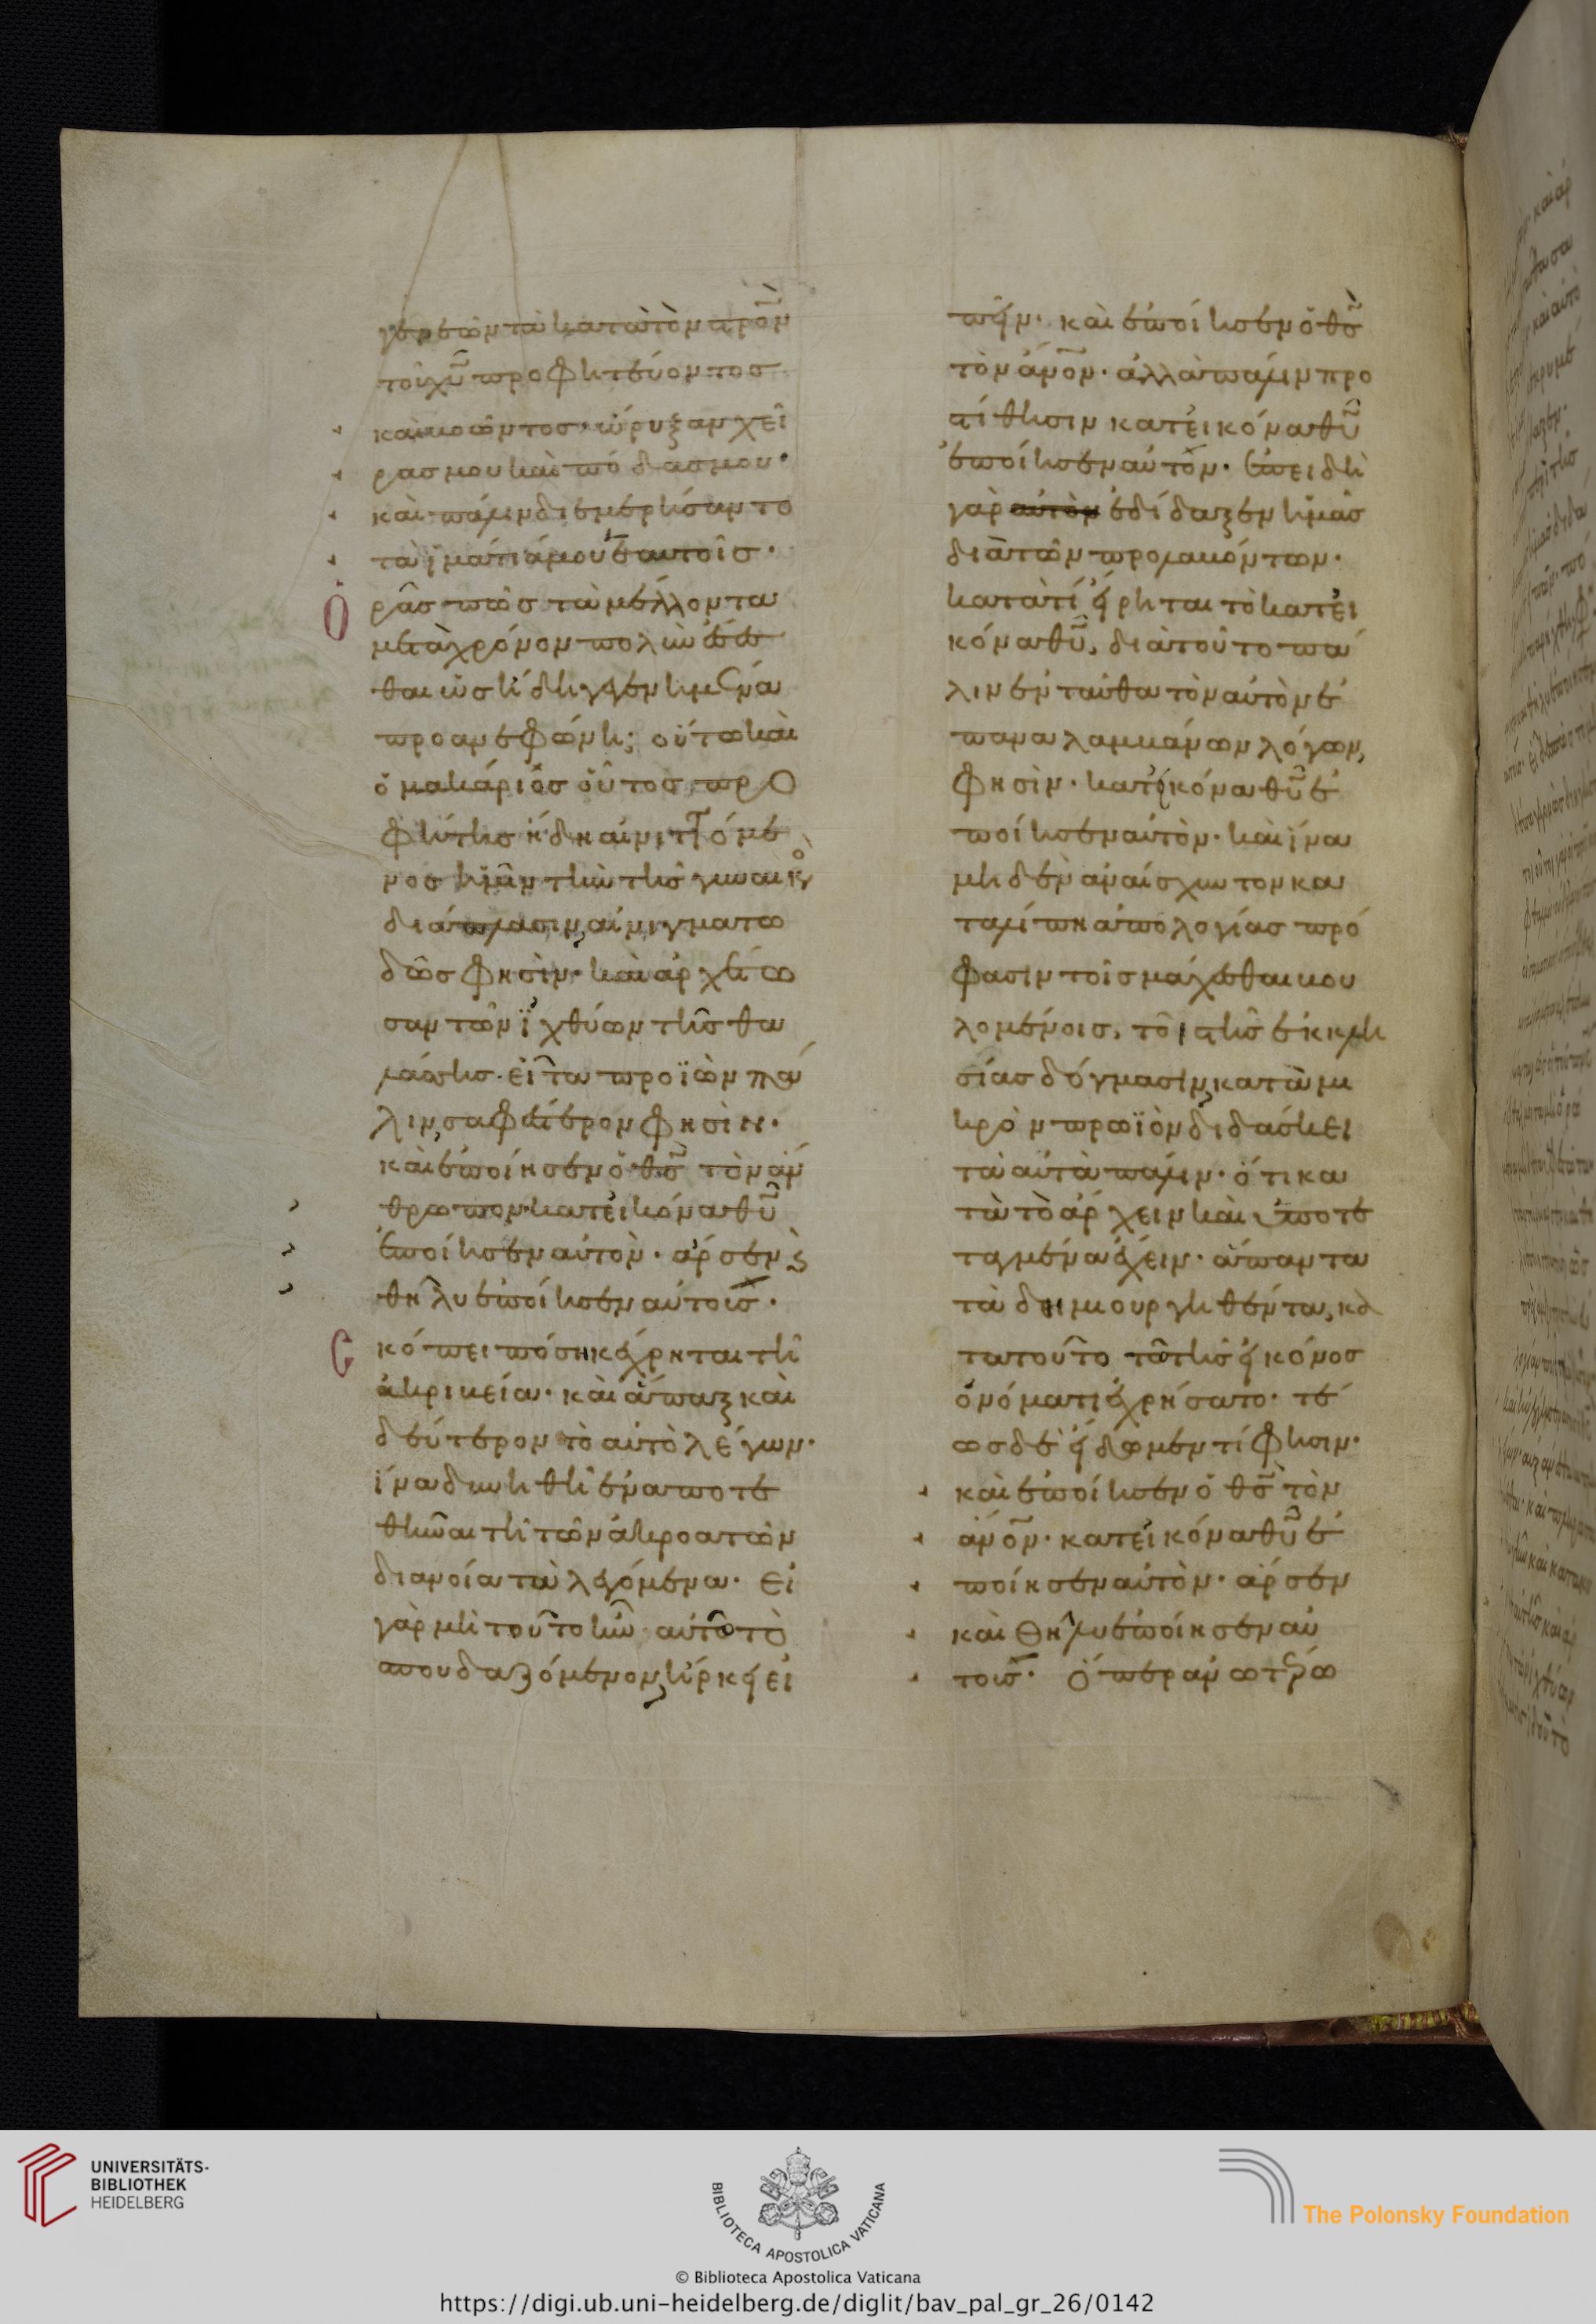 γει ἐκ τῶν κατὰ τὸν προν
τοῦ χυ προφητεύοντος
καὶ βοῶντος· ὤρυξαν χεῖ
ρας μου καὶ πόδας μου·
καὶ πάλιν διεμερίσαντο
τὰ ἱμάτιά μου ἑαυτοῖς·
Ὁρᾶς πῶς τὰ μέλλοντα
μετὰ χρόνον πολὺν
θαι ὡς ἤδη γεγενημένα
προανεφώνει; οὕτω καὶ
ὁ μακάριος οὗτος προ
φήτης ἤδη αἰνιττόμε
νος ἡμῖν τὴν τῆς γυναικὸς
διάπλασιν, αἰνιγματω
δῶς φησίν· καὶ ἀρχέτω
σαν τῶν ἰχθύων τῆς θα
λάσσης. εἶτα προϊὼν πά
λιν, σαφέστερον φησίν·
καὶ ἐποίησεν ὁ θς τὸν ἄν
θρωπον· κατ' εἰκόνα θυ
ἐποίησεν αὐτόν· ἄρσεν καὶ
θῆλυ ἐποίησεν αὐτούς·
Σκόπει πόσῃ κέχρηται τῇ
ἀκριβείᾳ· καὶ ἅπαξ καὶ
δεύτερον τὸ αὐτὸ λέγων·
ἵνα δυνηθῇ ἐναποτε
θῆναι τῇ τῶν ἀκροατῶν
διανοίᾳ τὰ λεγόμενα· εἰ
γὰρ μὴ τοῦτο ἦν αὐτῷ τὸ
σπουδαζόμενον, ἤρκει εἰ
πεῖν· καὶ ἐποίησεν ὁ θς
τὸν ἄνον· ἀλλὰ πάλιν προ
τίθησιν κατ' εἰκόνα θυ
ἐποίησεν αὐτόν· ἐπειδὴ
γὰρ αὐτὸν ἐδίδαξεν ἡμᾶς
διὰ τῶν προλαβόντων·
κατὰ τί εἴρηται τὸ κατ' εἰ
κόνα θυ, διὰ τοῦτο πά
λιν ἐνταῦθα τὸν αὐτὸν ἐ
παναλαμβάνων λόγων,
φησίν· κατ' εἰκόνα θυ ἐ
ποίησεν αὐτόν· καὶ ἵνα
μηδὲν ἀναίσχυντον κα
ταλίπῃ ἀπολογίας πρό
φασιν τοῖς μάχεσθαι βου
λομένοις, τοῖς τῆς ἐκκλη
σίας δόγμασιν, κατὰ μι
κρὸν προϊὸν διδάσκει
τὰ αὐτὰ πάλιν· ὅτι κα
τὰ τὸ ἄρχειν καὶ ὑποτε
ταγμένα ἔχειν· ἅπαντα
τὰ δημιουργηθέντα, κα
τὰ τοῦτο τῷ τῆς εἰκόνος
ὀνόματι ἐχρήσατο· τέ
ως δὲ εἴδωμεν τί φησιν·
καὶ ἐποίησεν ὁ θς τὸν
ἄνον· κατ' εἰκόνα θυ ἐ
ποίησεν αὐτόν· ἄρσεν
καὶ θῆλυ ἐποίησεν αὐ
τούς· ὅπερ ἀνωτέρω
UNIVERSITÄTS-
BIBLIOTHEK
HEIDELBERG
BIBLIOTECA APOSTOLICA VATICANA
The Polonsky Foundation
© Biblioteca Apostolica Vaticana
https://digi.ub.uni-heidelberg.de/diglit/bav_pal_gr_26/0142